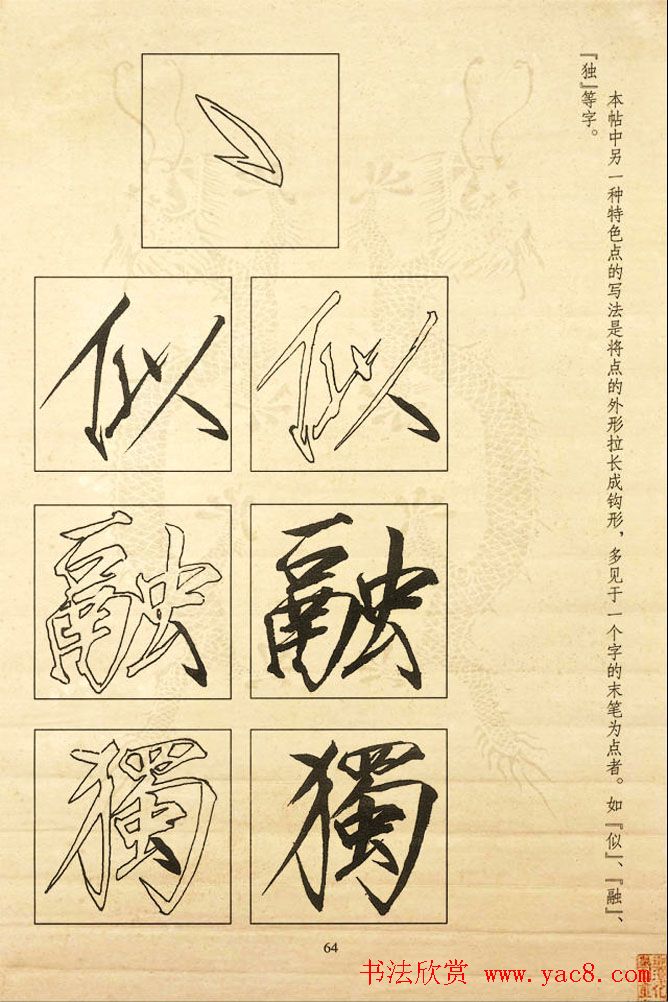 本帖中另一种特色点的写法是将点的外形拉长成钩形，多见于一个字的末笔为点者。如『似』、『融』、
『独』等字。
似 似
融 融
獨 獨
64
书法欣赏 www.yac8.com